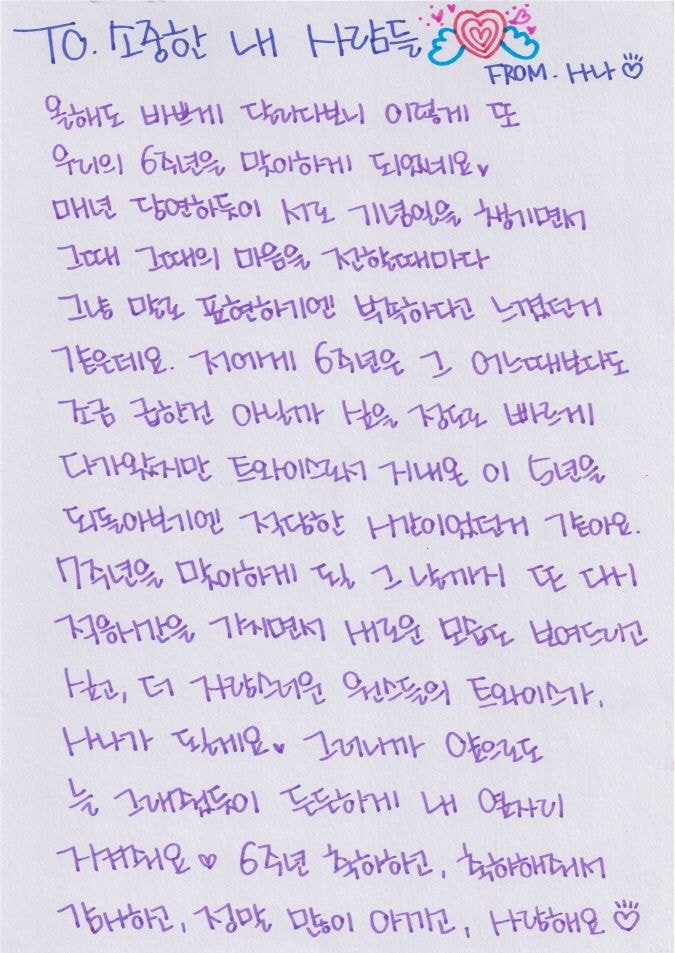 TO. 소중한 내 사람들
FROM. 사나
올해도 바쁘게 달리다보니 이렇게 또
우리의 6주년을 맞이하게 되었네요♥
매년 당연하듯이 서로 기념일을 챙기면서
그때 그때의 마음을 전할때마다
그냥 말로 표현하기엔 벅착하다고 느꼈던거
같은데요. 저에게 6주년은 그 어느때보다도
조금 급한건 아닐까 싶을 정도로 빠르게
다가왔지만 트와이스로서 지내온 이 5년을
되돌아보기엔 적당한 시간이었던거 같아요.
7주년을 맞이하게 될 그 날까지 또 다시
적응시간을 가지면서 새로운 모습도 보여드리고
싶고, 더 자랑스러운 원스들의 트와이스가,
사나가 될게요♥ 그러니까 앞으로도
늘 그래줬듯이 든든하게 내 옆자리
지켜줘요♡ 6주년 축하하고, 축하해줘서
감사하고, 정말 많이 아끼고, 사랑해요♡